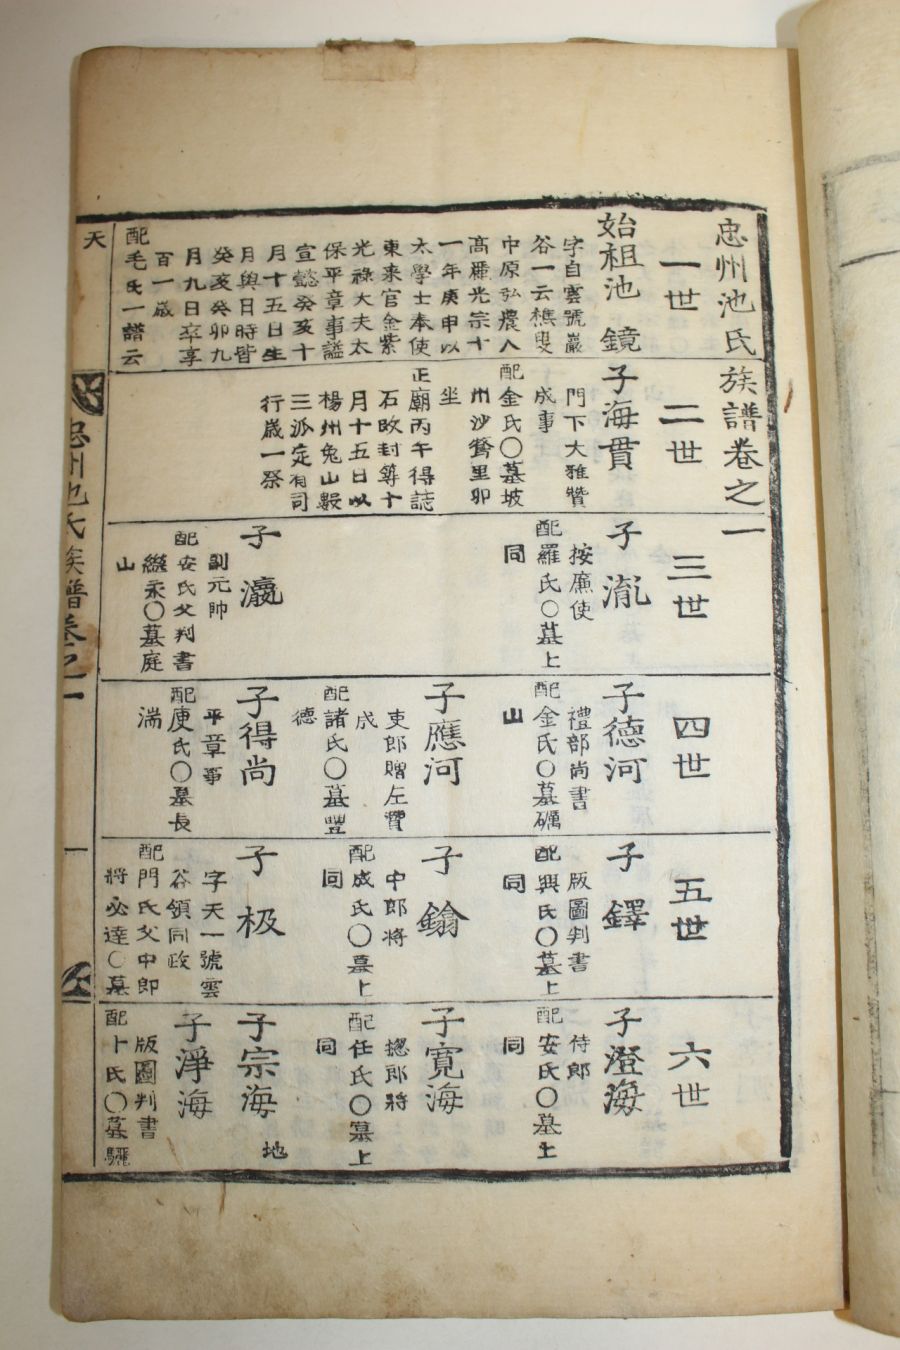 忠州池氏族譜卷之一
一世
始祖池 鏡
字自雲號巖
谷一云樵叟
中原弘農人
高麗光宗十
一年庚申以
太學士奉使
東来官金紫
光祿大夫太
保平章事謚
宣懿癸亥十
月十五日生
月與日時皆
癸亥癸卯九
月九日卒享
百一歲
配毛氏一譜云
二世
子海貫
門下大雅贊
成事
配金氏〇墓坡
州沙鶩里卯
坐
正廟丙午得誌
石改封築十
月十五日以
楊州兔山數
三派定有司
行歲一祭
三世
子 㣧
按廉使
配羅氏〇墓上
同
子 瀛
副元帥
配安氏父判書
永〇墓庭
山
四世
子德河
禮部尚書
配金氏〇墓礪
山
子應河
吏郎贈左贊
成
配諸氏〇墓豐
德
子得尚
平章事
配庾氏〇墓長
湍
五世
子 鐸
版圖判書
配興氏〇墓上
同
子 鏥
中郎將
配成氏〇墓上
同
子 极
字天一號雲
谷領同政
配門氏父中郎
將必達〇墓
六世
子澄海
侍郎
配安氏〇墓上
同
子寬海
摠郎將
配任氏〇墓上
同
子宗海 地
子淨海
版圖判書
配卜氏〇墓驪
天
忠州池氏族譜卷之一
一